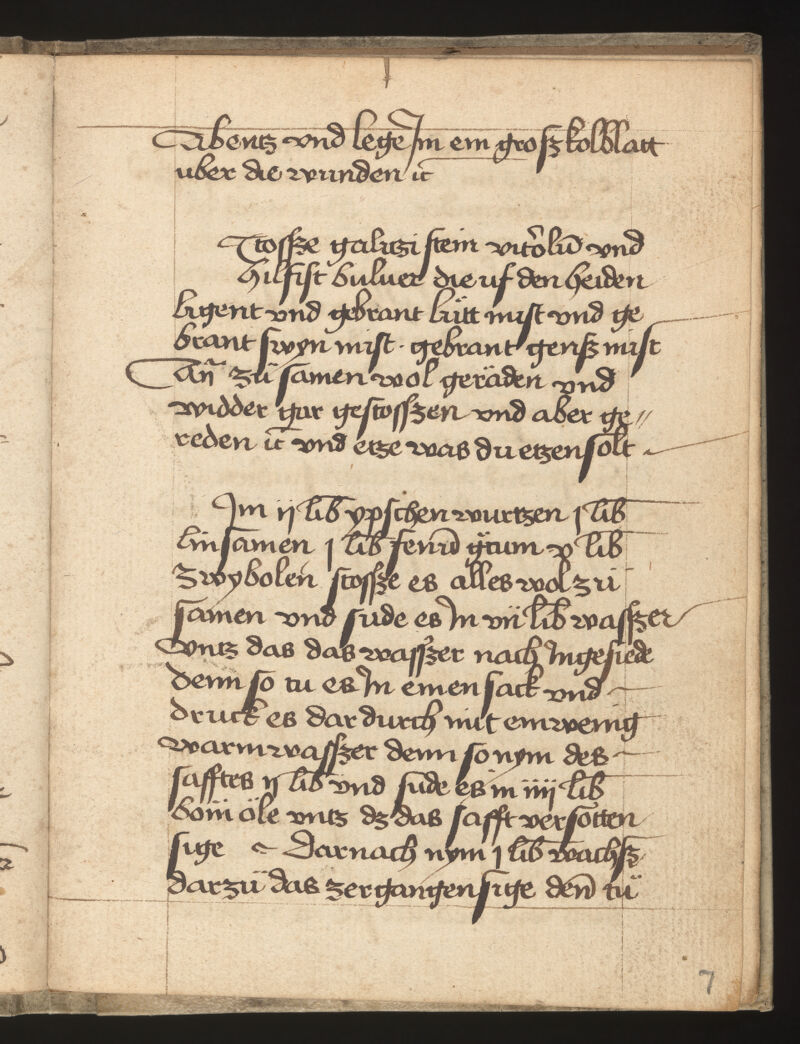 Abentz vnd lege Jm ein grosz kolblatt
uber die wunden ꝛc
Stossze galitzistein vitriolū vnd
hilfist bulver die uf den heiden
ligent vnd gebrant lütt mist vnd ge
brant swyn mist · gebrant gensz mist
Añ zů samen wol geräden vnd
widder gar gestosszen vnd aber ge〃
reden ꝛc vnd etze was du etzen solt
Jm ij lib ypschen wurtzen j lib
linsamen j lib fenū grecum v lib
zwybolen stossze es alles wol zů
samen vnd sude es Jn vii lib wasszer
vntz das das wasszer nach Jngesiede
denn so tu es Jn einen sack vnd
druck es dar durch mit ein wenig
warm wasszer denn so nym des
safftes ij lib vnd sude es in iiij lib
bom öle vntz dz das safft versotten
sige Darnach nym j lib wachsz
darzů das zergangen sige denn tů
7